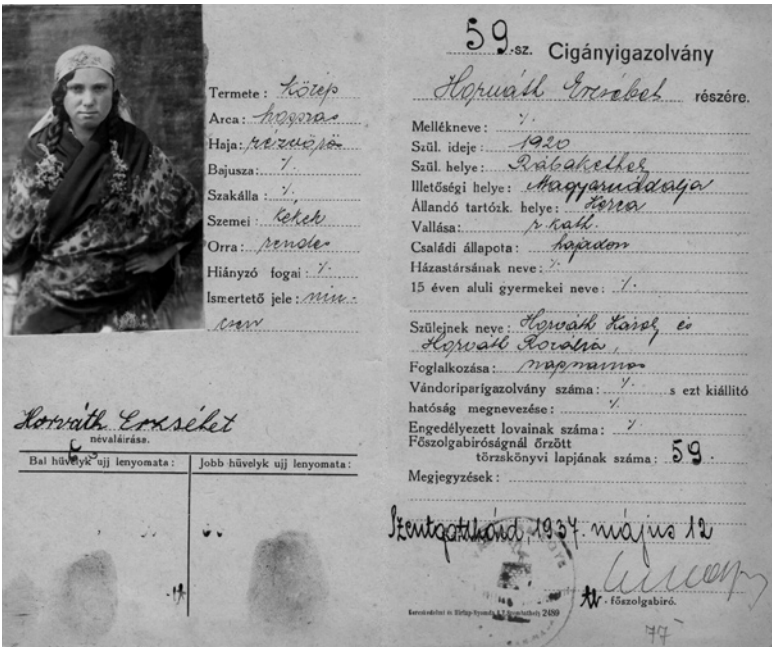 Termete: Közép
Arca: hosszas
Haja: rézvörös
Bajusza: ٪
Szakálla: ٪
Szemei: kékek
Orra: rendes
Hiányzó fogai: ٪
Ismertető jele: nin-
csen
Horváth Erzsébet
névaláirása.
Bal hüvelyk ujj lenyomata:
Jobb hüvelyk ujj lenyomata:
59.-sz. Cigányigazolvány
Horváth Erzsébet részére.
Mellékneve: ٪
Szül. ideje: 1920
Szül. helye: Rábakethely
Illetőségi helye: Magyarnádalja
Állandó tartózk. helye:
Vallása: r. kath.
Családi állapota: hajadon
Házastársának neve: ٪
15 éven aluli gyermekei neve: ٪
Szüleinek neve: Horváth Károly és
Horváth Rozália,
Foglalkozása: napszámos
Vándoriparigazolvány száma: ٪ s ezt kiállító
hatóság megnevezése: ٪
Engedélyezett lovainak száma: ٪
Főszolgabiróságnál őrzött
törzskönyvi lapjának száma: 59.
Megjegyzések:
Szentgotthárd, 1937. május 12
főszolgabiró.
77